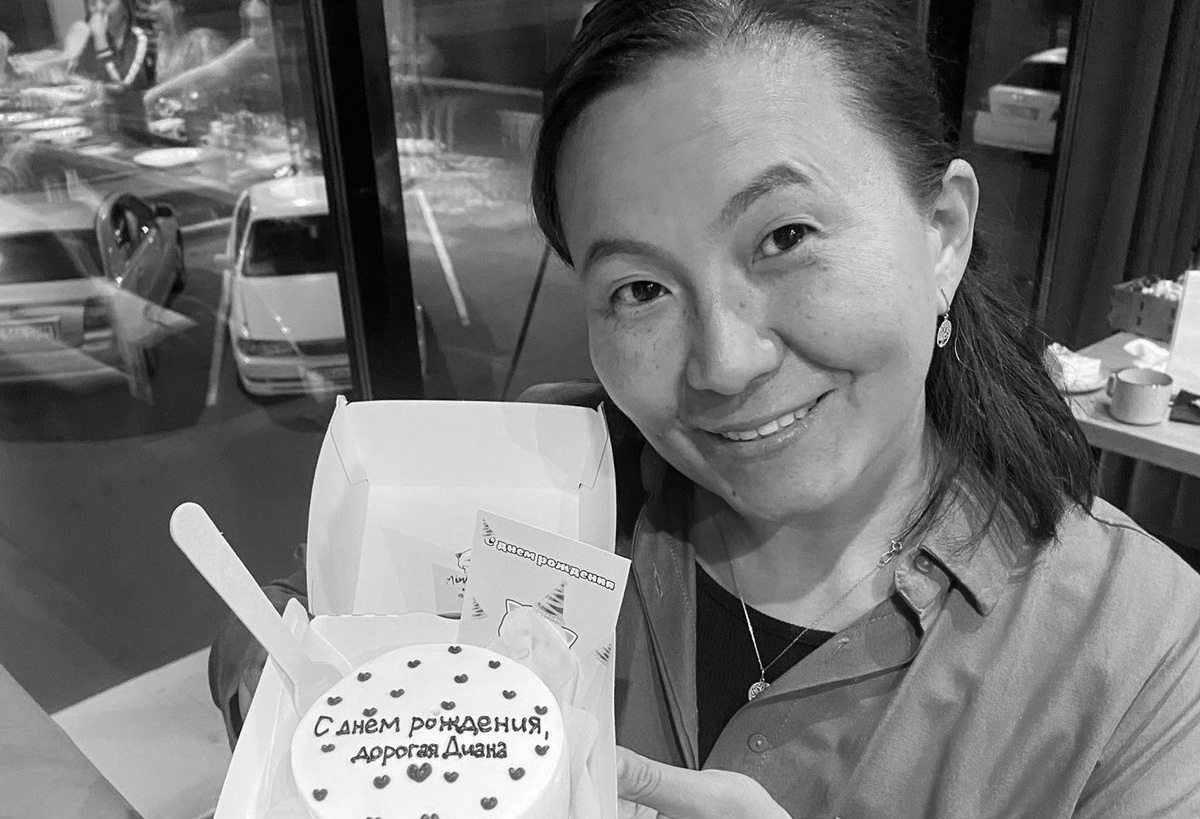 С днем рождения
С днем рождения,
дорогая Диана